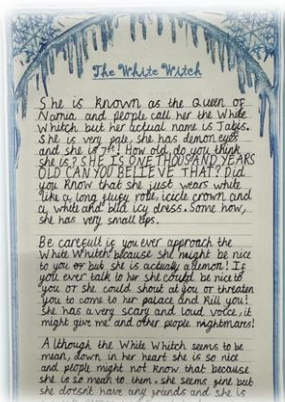 The White Witch
She is known as the Queen of
Narnia and people call her the White
Whitch but her actual name is Jadis.
She is very pale, she has demon eyes
and she is 7ft! How old do you think
she is? SHE IS ONE THOUSAND YEARS
OLD CAN YOU BELIEVE THAT? Did
you know that she just wears white
like a long flufy robe, icicle crown and
a white and blue icy dress. Some how,
she has very small lips.
Be carefull is you ever approach the
White Whitch because she might be nice
to you or but she is actually a demon! If
you ever talk to her she could be nice to
you or she could shout at you or threaten
you to come to her palace and kill you!
She has a very scary and loud voice, it
might give me and other people nightmares!
Although the White Whitch seems to be
mean, down in her heart she is so nice
and people might not know that because
she is so mean to them. she seems fine but
she doesnt have any friends and she is